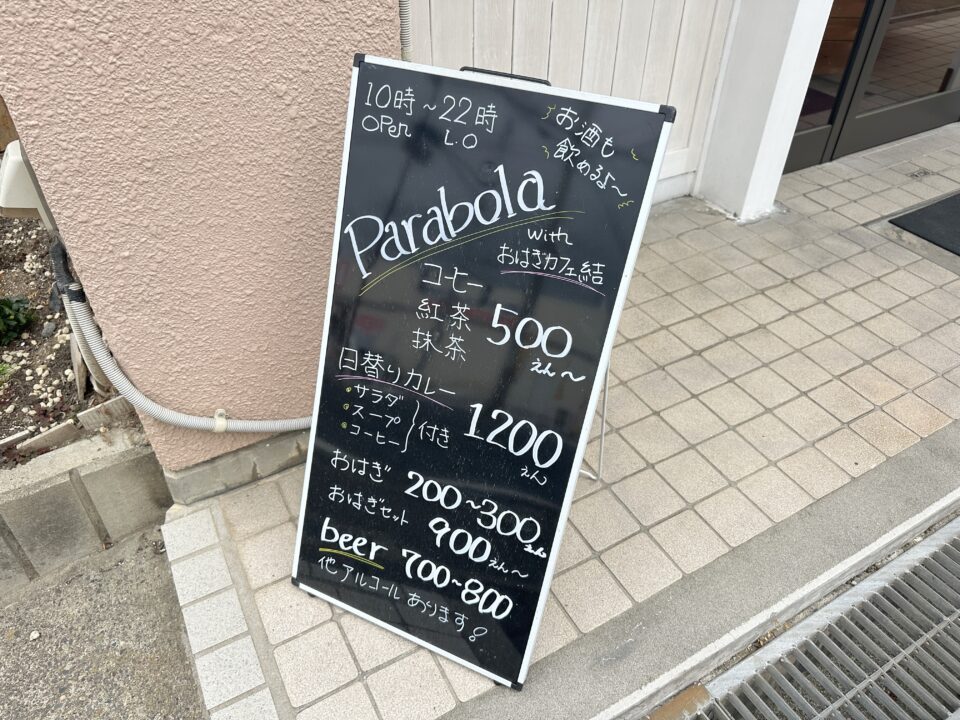 10時~22時
OPen L.O
お酒も
飲めるよ~
Parabola
with
おはぎカフェ結
コーヒー
紅茶
抹茶
500
えん~
日替りカレー
・サラダ
・スープ
・コーヒー
付き
1200
えん
おはぎ 200~300えん
おはぎセット 900えん~
beer 700~800
他アルコールあります!